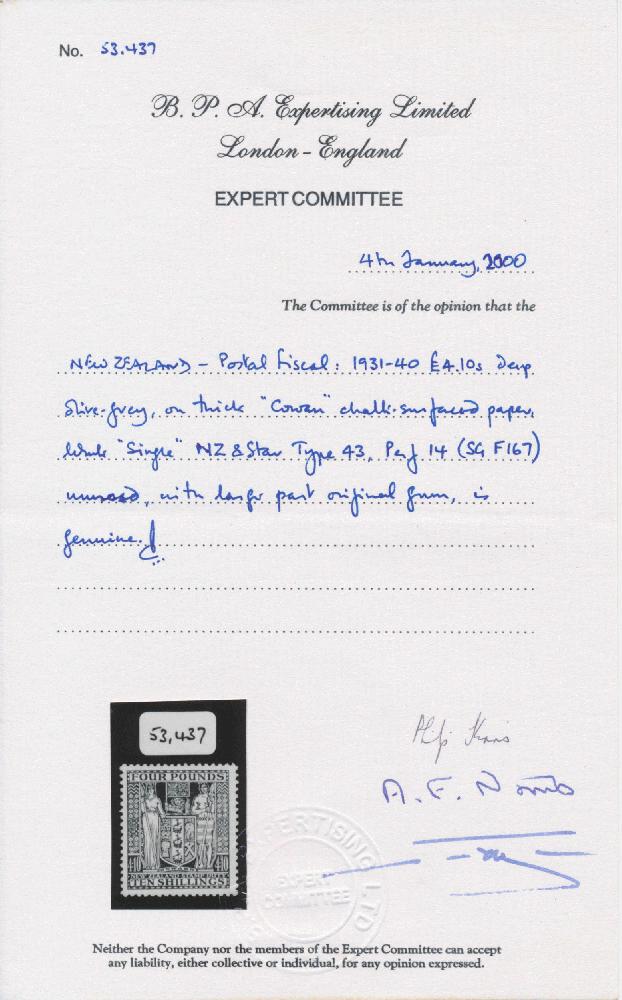 No. 53.437
B. P. A. Expertising Limited
London - England
EXPERT COMMITTEE
4th January, 2000
The Committee is of the opinion that the
NEW ZEALAND - Postal Fiscal: 1931-40 £4.10s Deep
Olive-grey, on thick "Cowan" chalk-surfaced paper,
Wmk "Single" NZ & Star Type 43, Perf 14 (SG F167)
unused, with large part original gum, is
genuine.
53,437
FOUR POUNDS
NEW ZEALAND STAMP DUTY
TEN SHILLINGS
EXPERTISING LTD
EXPERT
COMMITTEE
Neither the Company nor the members of the Expert Committee can accept
any liability, either collective or individual, for any opinion expressed.